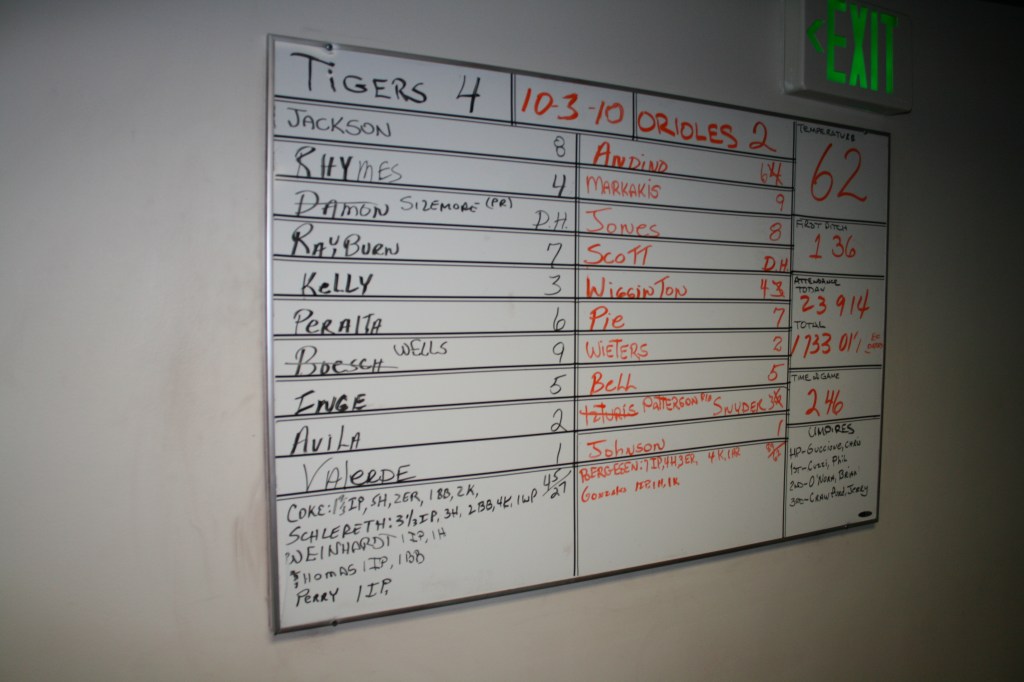 EXIT
TIGERS 4
10-3-10
ORIOLES 2
JACKSON 8
RHYMES 4
DAMON SIZEMORE (PR) D.H.
RAYBURN 7
KELLY 3
PERALTA 6
BOESCH WELLS 9
INGE 5
AVILA 2
VALERDE 1
COKE: IP, 5H, 2ER, 1BB, 2K,
45/27
SCHLERETH: 3 1/3 IP, 3H, 2BB, 4K, 1WP
WEINHARDT 1IP, 1H
THOMAS 1IP, 1BB
PERRY 1IP,
ANDINO 64
MARKAKIS 9
JONES 8
SCOTT D.H
WIGGINTON 43
PIE 7
WIETERS 2
BELL 5
IZTURIS PATTERSON SNYDER
JOHNSON 1
BERGESEN: 7IP, 4H, 3ER, 4K, 1HR
TEMPERATURE
62
FIRST PITCH
1 36
ATTENDANCE
TODAY
23 914
TOTAL
1 733 01
TIME OF GAME
2 46
UMPIRES
HP-GUCCIONE, CHRIS
1ST-CUZZI, PHIL
2ND-O'NORA, BRIAN
3RD-CRAWFORD, JERRY